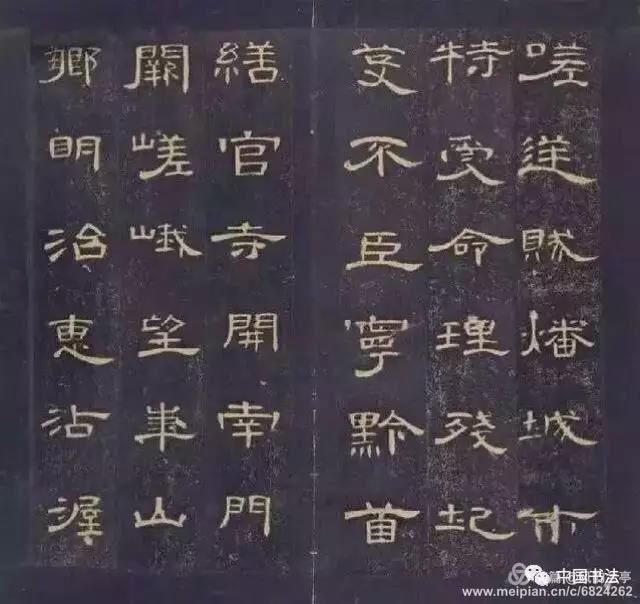 嗟逆賊燔城市
特受命理殘圮
芟不臣寧黔首
繕官寺開南門
闕嵯峨望華山
鄉明治惠沾渥
中国书法
www.meipian.cn/c/6824262